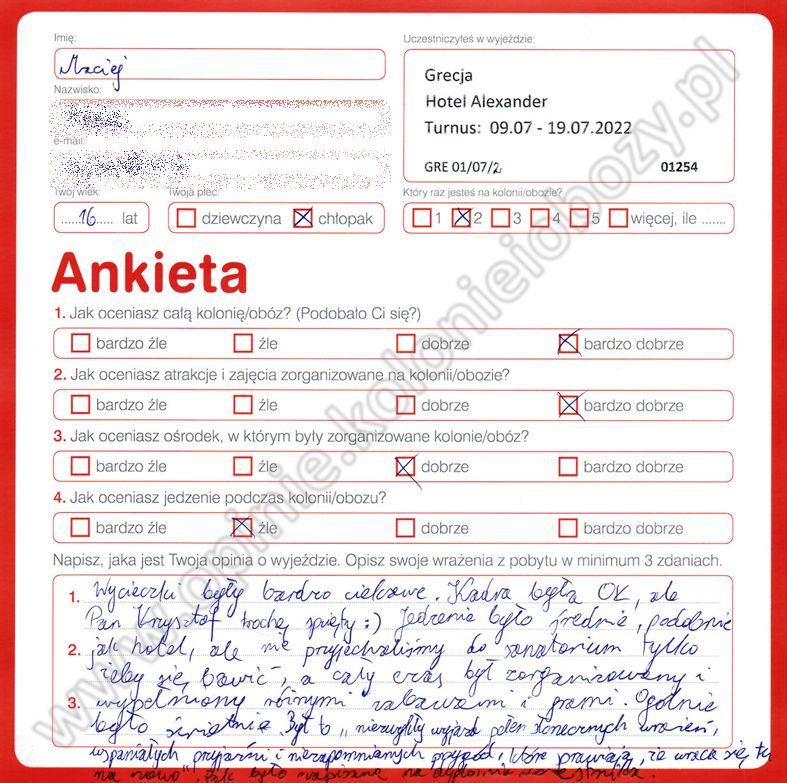 Imię:
Uczestniczyłeś w wyjeździe:
Maciej
Grecja
Hotel Alexander
Turnus: 09.07 - 19.07.2022
GRE 01/07/2 01254
Nazwisko:
e-mail:
Twój wiek:
Twoja płeć:
Który raz jesteś na kolonii/obozie?
16 lat
dziewczyna chłopak
1 2 3 4 5 więcej, ile .......
Ankieta
1. Jak oceniasz całą kolonię/obóz? (Podobało Ci się?)
bardzo źle źle dobrze bardzo dobrze
2. Jak oceniasz atrakcje i zajęcia zorganizowane na kolonii/obozie?
bardzo źle źle dobrze bardzo dobrze
3. Jak oceniasz ośrodek, w którym były zorganizowane kolonie/obóz?
bardzo źle źle dobrze bardzo dobrze
4. Jak oceniasz jedzenie podczas kolonii/obozu?
bardzo źle źle dobrze bardzo dobrze
Napisz, jaka jest Twoja opinia o wyjeździe. Opisz swoje wrażenia z pobytu w minimum 3 zdaniach.
1. Wycieczki były bardzo ciekawe. Kadra była OK, ale
Pan Krzysztof trochę spięty :) Jedzenie było średnie, podobnie
2. jak hotel, ale nie przyjechaliśmy do sanatorium tylko
żeby się bawić, a cały czas był zorganizowany i
3. wypełniony różnymi zabawami i grami. Ogólnie
było świetnie. Był to „niezwykły wyjazd pełen słonecznych wrażeń,
wspaniałych przyjaźni i niezapomnianych przygód, które prawiają, że wraca się tu
na nowo", jak było napisane na dyplomie
www.opinie.kolonieiobozy.pl